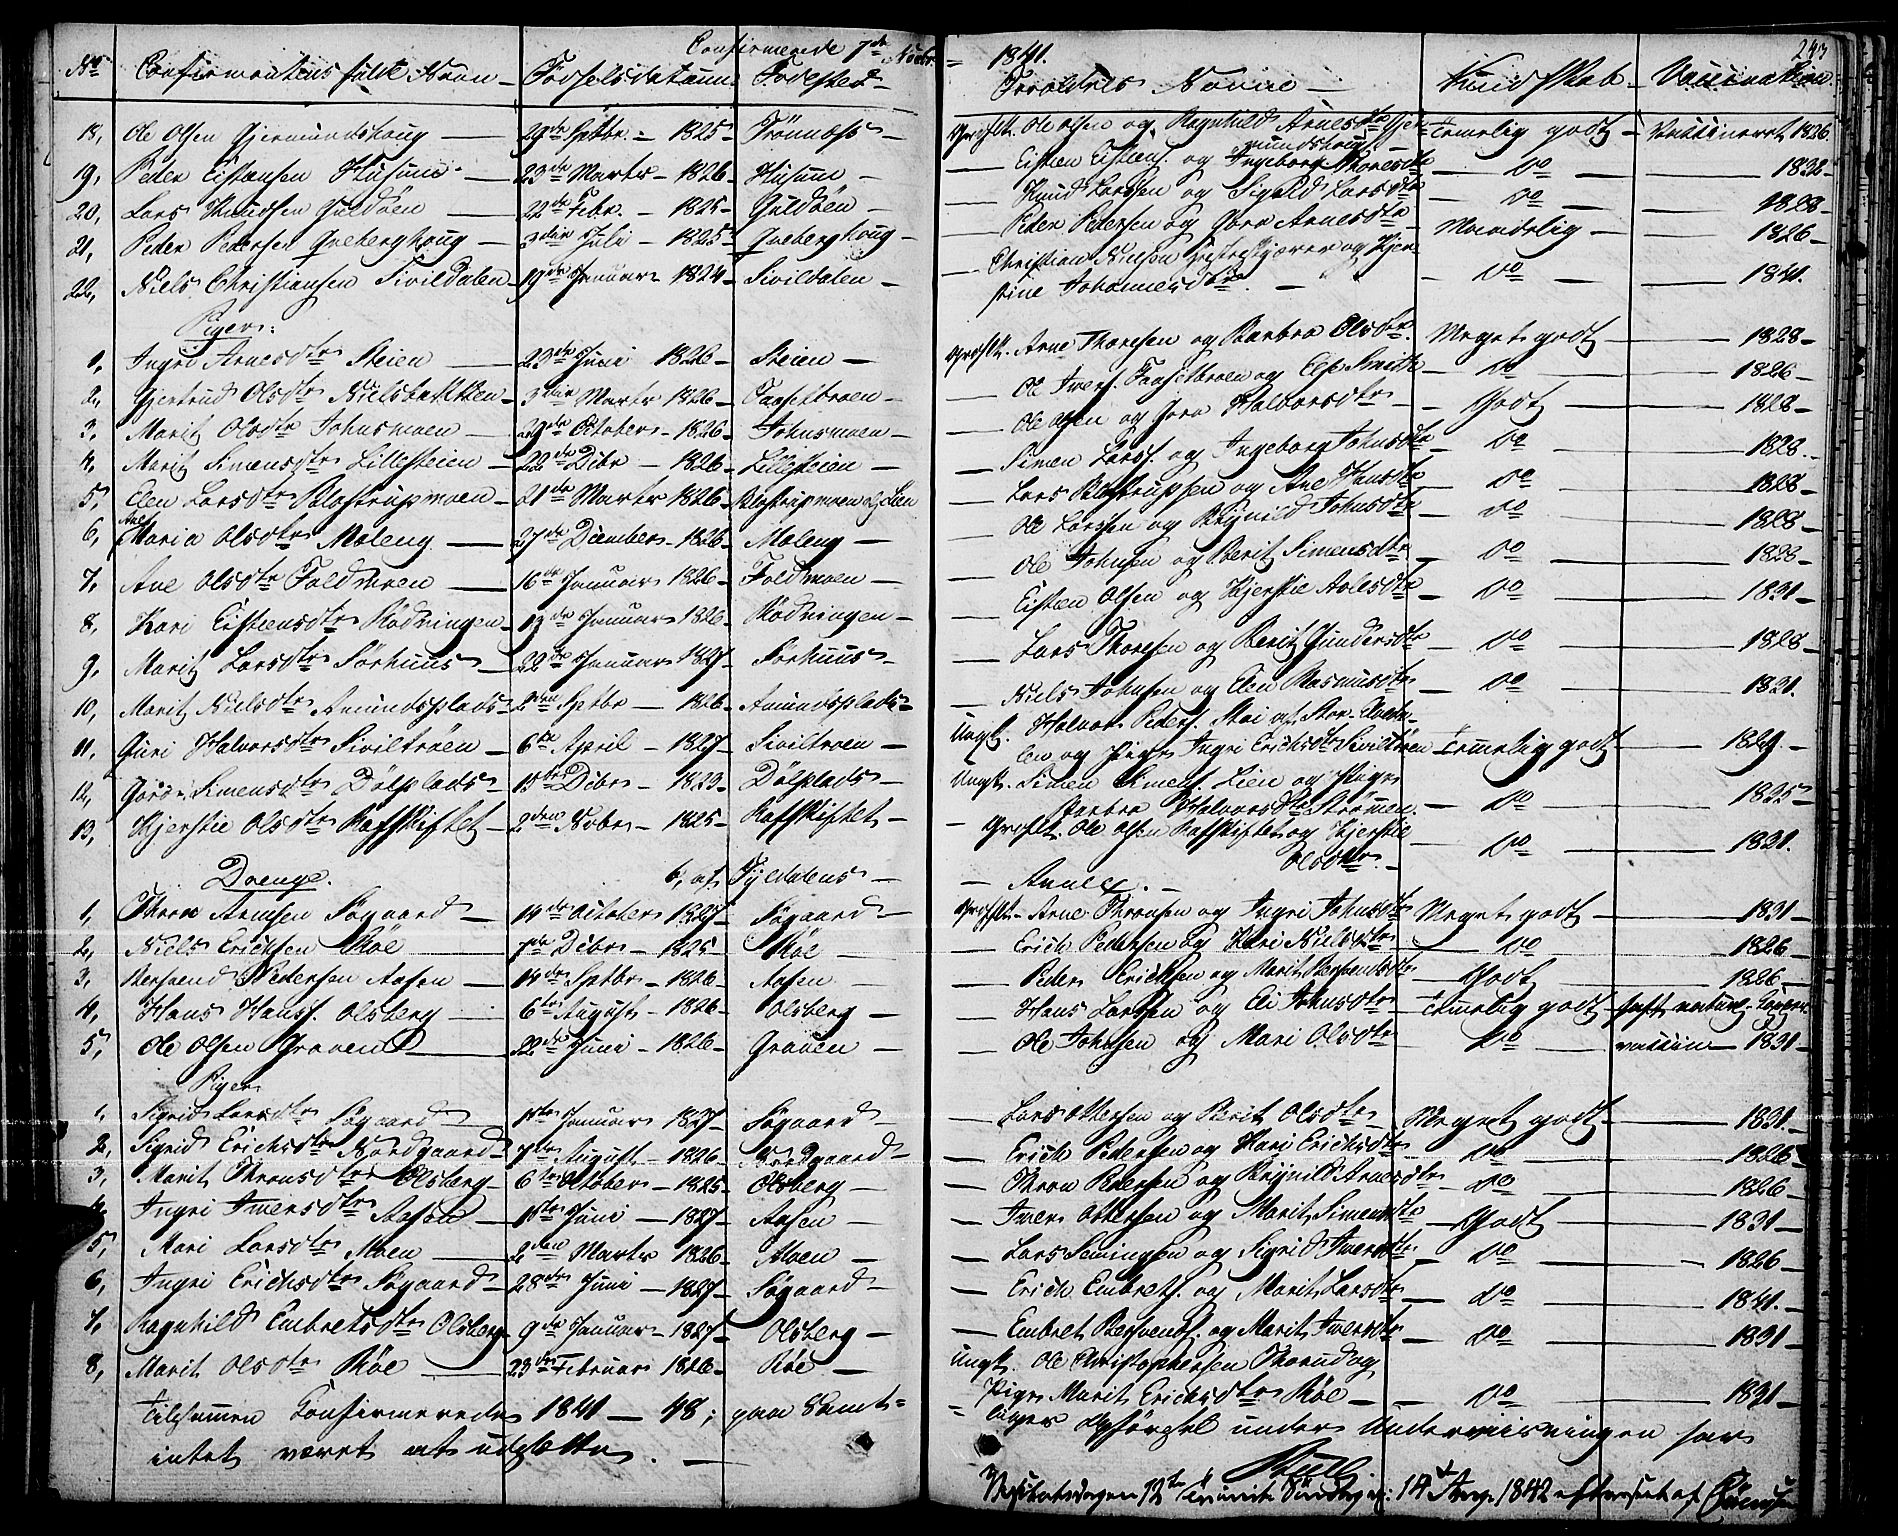 Confirmerede 7de Novbr = 1841. 243
No Confirmantens fulde Navn - Fødselsdatum Fødested - Forældres Navne - Kundskab - Vaccination
18, Ole Olsen Gjermundshoug - 29de Septbr - 1825 - Trønnæss - Grdflk. Ole Olsen og Ragnhild Arnesdtr Gjer- Temmelig godt - Vaccineret 1826
mundshoug -
19, Peder Eistensen Husum - 23de Marts - 1826 - Husum - Eisten Eistens. og Ingeborg Thoresdtr - Do - 1828 -
20, Lars Knudsen Guldøen - 22de Febr. - 1825 - Guldøen - Knud Larssen og Sigrid Larsdtr - Do - 1828 -
21, Peder Pedersen Qveberghoug - 3die Juli - 1825 - Qveberghoug - Peder Pedersen og Goro Arnesdtr - Maadelig - 1826 -
22, Niels Christiansen Sivildalen - 19de Januar - 1824 - Sivildalen - Christian Nielsen og Kjer-
stine Johannesdtr. - Do - 1841.
Piger:
1, Ingri Arnesdtr Steien - 23de Juni 1826 - Steien - Grdflk. Arne Thoresen og Barbra Olsdtr. Meget godt - 1828 -
2, Gjertrud Olsdtr Nielsbakken - 3die Marts 1826 - Faasetbroen - Ole Ivers. Faasetbroen og Else - Do - 1826 -
3, Marit Olsdtr Johnsmoen - 29de October - 1826 - Johnsmoen - Ole Olsen og Goro Halvorsdtr - Godt - 1828 -
4, Marit Simensdtr Lillesteien - 22de Dcbr - 1826 - Lillesteien - Simen Larss. og Ingeborg Johnsdtr - Do - 1828.
5, Elen Larsdtr Blostrupmoen - 21de Marts 1826 - Blostrupmoen - Lars Blostrupsen og Ane Hansdtr - Do - 1828 -
6, Ane Maria Olsdtr Moleng - 27de December - 1826 - Moleng - Ole Larssen og Brynild Johnsdtr - Do - 1828 -
7, Ane Olsdtr Foldmoen - 16de Januar 1826 - Foldmoen - Ole Johnsen og Berit Simensdtr - Do - 1828 -
8, Kari Eistensdtr Rødningen - 13de Januar 1826 - Rødningen - Eisten Olsen og Kjerstie - Do - 1831 -
9, Marit Larsdtr Sørhuus - 22de Januar 1827 - Sørhuus - Lars Thoresen og Berit Gundersdtr - Do - 1828 -
10, Marit Nielsdtr Amundsplads - 2den Septbr - 1826 - Amundsplads - Niels Johnsen og Elen Rasmusdtr - Do - 1821.
11, Guri Halvorsdtr Siviltrøen - 6te April - 1827 - Siviltroen - Ungk. Halvor Peders. Moi af
og Pige Ingri Erichsdtr Siviltrøen Temmelig godt - 1829 -
12, Goro Simensdtr Dølplads - 15de Dcbr - 1823 - Dølplads - Ungk. Simen Simens. Lien og Pige
Barbra Halvorsdtr Strømmen - Do - 1825 -
13, Kjerstie Olsdtr Kaffskiftet - 2den Novbr - 1825 - Kaffskiftet - Grdflk. Ole Olsen Kaffskiftet og Kjerstie
Olsdtr. - Do - 1821.
Drenge. 6, af Tyldalens - Annex. -
1, Thron Arnesen Søgaard - 14de October 1827 - Søgaard - Grdflk. - Arne Thronsen og Ingri Johnsdtr Meget godt - 1831 -
2, Niels Erichsen Røe - 7de Dcbr - 1825 - Røe - Erich Pedersen og Kari Nielsdtr - Do - 1826 -
3, Bersvend Pedersen Aasen - 14de Septbr - 1826 - Aasen - Peder Erichsen og Marit Bersvendsdtr - Godt - 1826 -
4, Hans Hanss. Olsberg - 6te August - 1826 - Olsberg - Hans Larssen og Eli Johnsdtr - Temmelig godt - haft naturl.
5, Ole Olsen Graven - 22de Juni - 1826 - Graven - Ole Johnsen og Mari Olsdtr - Do - vaccin - 1831 -
Piger
1, Sigrid Larsdtr Søgaard - 1ste Januar 1827 - Søgaard - Lars Ottersen og Berit Olsdtr - Meget godt - 1831 -
2, Sigrid Erichsdtr Nordgaard - 7de August - 1826 - Nordgaard - Erich Pedersen og Kari Erichsdtr - Do - 1826 -
3, Marit Thronsdtr Olsberg - 6te October - 1825 - Olsberg - Thron Pedersen og Brynild Arnesdtr - Do - 1826 -
4, Ingri Iversdtr Aasen - 1ste Juni - 1827 - Aasen - Iver Ottersen og Marit Simensdtr - Godt - 1831 -
5, Mari Larsdtr Moen - 2den Marts 1826 - Moen - Lars Simingsen og Sigrid Iversdtr - Do - 1826 -
6, Ingri Erichsdtr Søgaard - 28de Juni - 1827 - Søgaard - Erich Embrets. og Marit Larsdtr - Do - 1841.
7, Ragnhild Embretsdtr Olsberg - 9de Januar - 1827 - Olsberg - Embret Bersvends. og Marit Iversdtr - Do - 1831 -
8, Marit Olsdtr Røe - 23de Februar 1826 - Røe - Ungk. Ole Christophersen Thorud og
Pige Marit Erichsdtr Røe - Do - 1831 -
Tilsammen Confirmerede 1841 - 48; paa Samt=
= liges Opførsel under Underviisningen har
intet været at udsætte. -
Visitatsdagen 12te Trinit. Søndag : 14 Aug. 1842 efterseet af